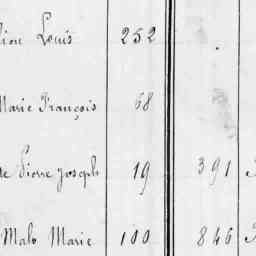 Louis 252
Marie François 68
Pierre Joseph 19 391
Malo Marie 100 846